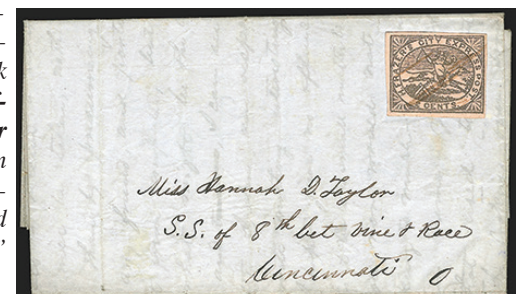 k
r
n
d
FRAZER'S CITY EXPRESS POST
2 CENTS
Miss Hannah D. Taylor
S.S. of 8th bet Vine & Race
Cincinnati O